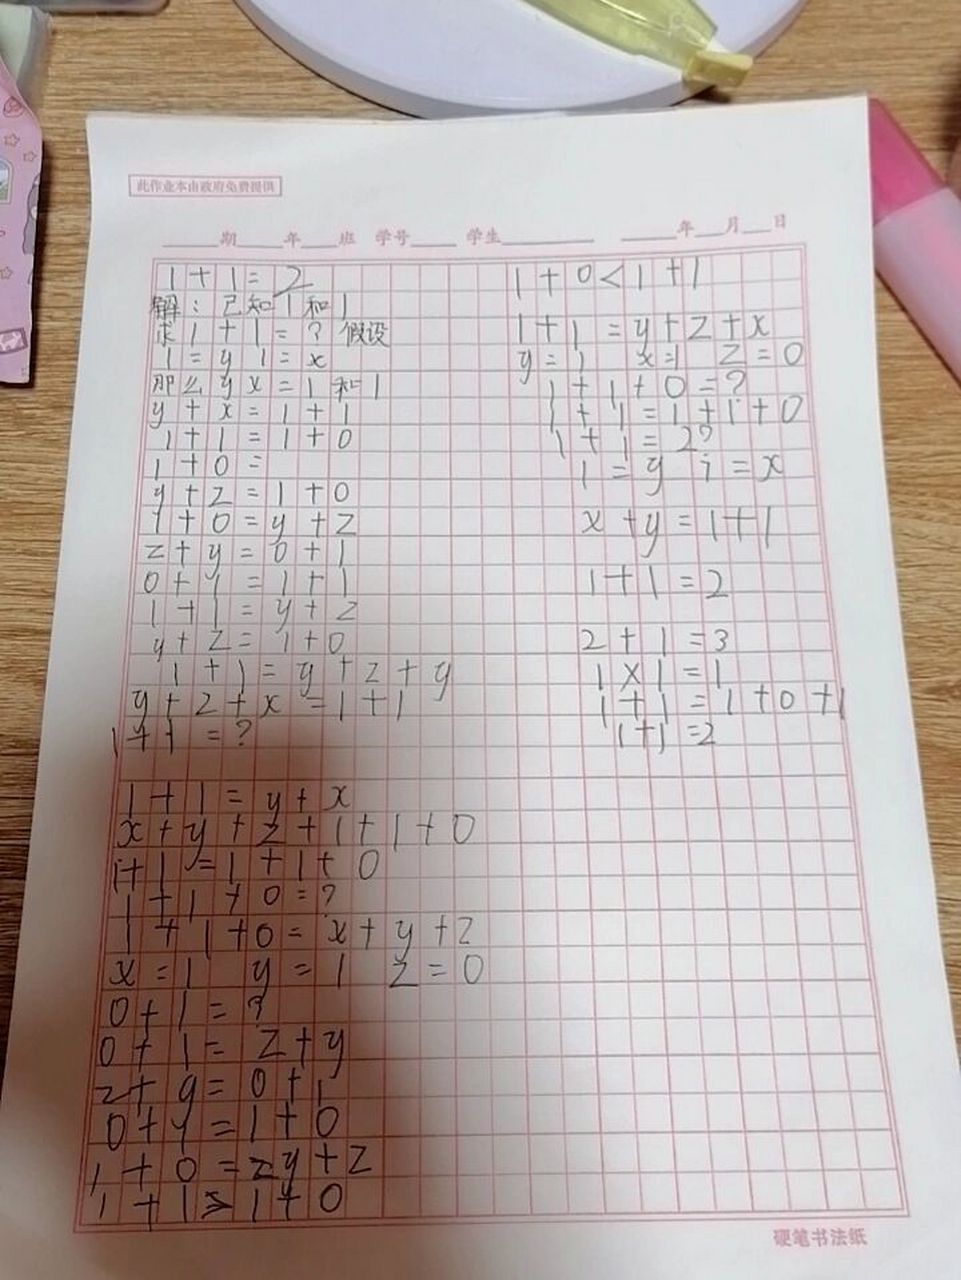 此作业本由政府免费提供
____期____年___班 学号____ 学生________ _____年___月___日
1+1=2
解:已知1和1
求1+1=? 假设
1=y 1=x
那么yx=1和1
y+x=1+1
1+1=1+0
1+0=
y+z=1+0
1+0=y+z
z+y=0+1
0+1=1+1
1+1=y+z
y+z=1+0
1+1=y+z+y
y+z+x=1+1
1+1=?
1+1=y+x
x+y+z+1+1+0
1+1=1+1+0
1+1+0=?
1+1+0=x+y+z
x=1 y=1 z=0
0+1=?
0+1=z+y
z+y=0+1
0+y=1+0
1+0=zy+z
1+1>1+0
1+0<1+1
1+1=y+z+x
y=1 x=1 z=0
1+1+0=?
1+1=1+1+0
1+1=2?
1=y 1=x
x+y=1+1
1+1=2
2+1=3
1×1=1
1+1=1+0+1
1+1=2
硬笔书法纸